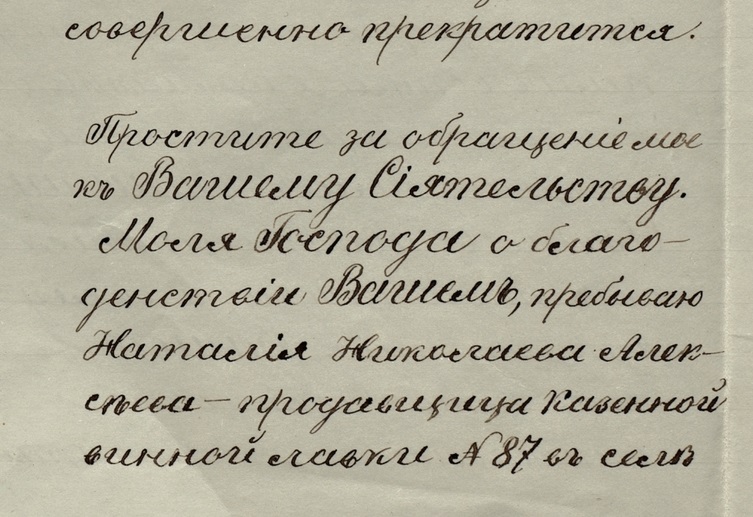 совершенно прекратится.
Простите за обращеніе мое
къ Вашему Сіятельству.
Моля Господа о благо-
денствіи Вашемъ, пребываю
Наталія Николаева Алек-
сѣева – продавщица казенной
винной лавки № 87 въ селѣ